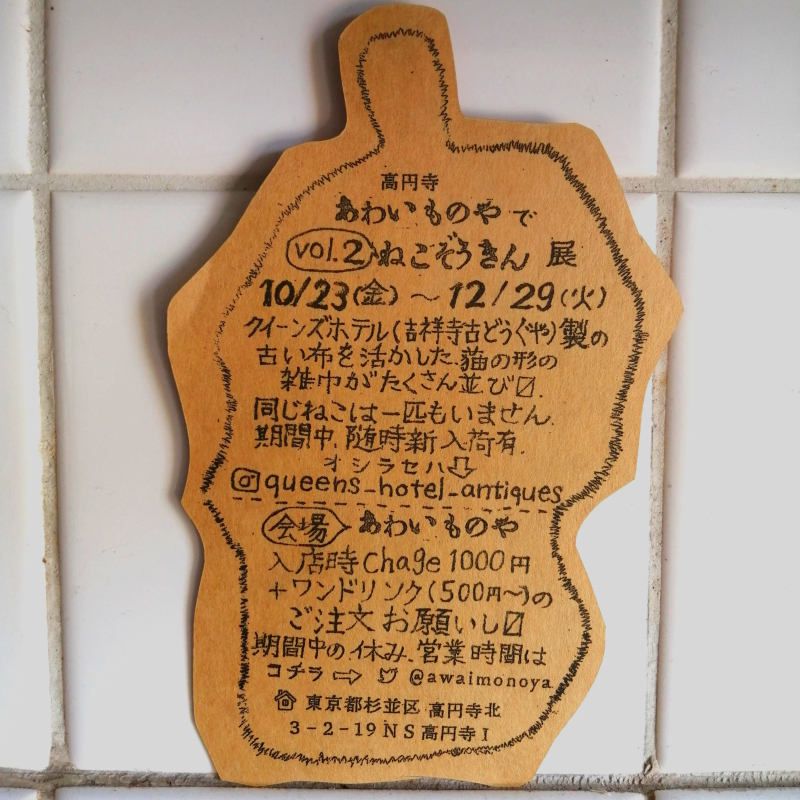 高円寺
あわいものやで
vol.2 ねこぞうきん 展
10/23(金)～12/29(火)
クイーンズホテル(吉祥寺古どうぐや)製の
古い布を活かした、猫の形の
雑巾がたくさん並び〼.
同じねこは一匹もいません.
期間中、随時新入荷有.
オシラセハ⇩
queens_hotel_antiques
会場 あわいものや
入店時Chage 1000円
+ワンドリンク(500円～)の
ご注文お願いし〼
期間中の休み、営業時間は
コチラ⇨ @awaimonoya
東京都杉並区 高円寺北
3-2-19NS高円寺I